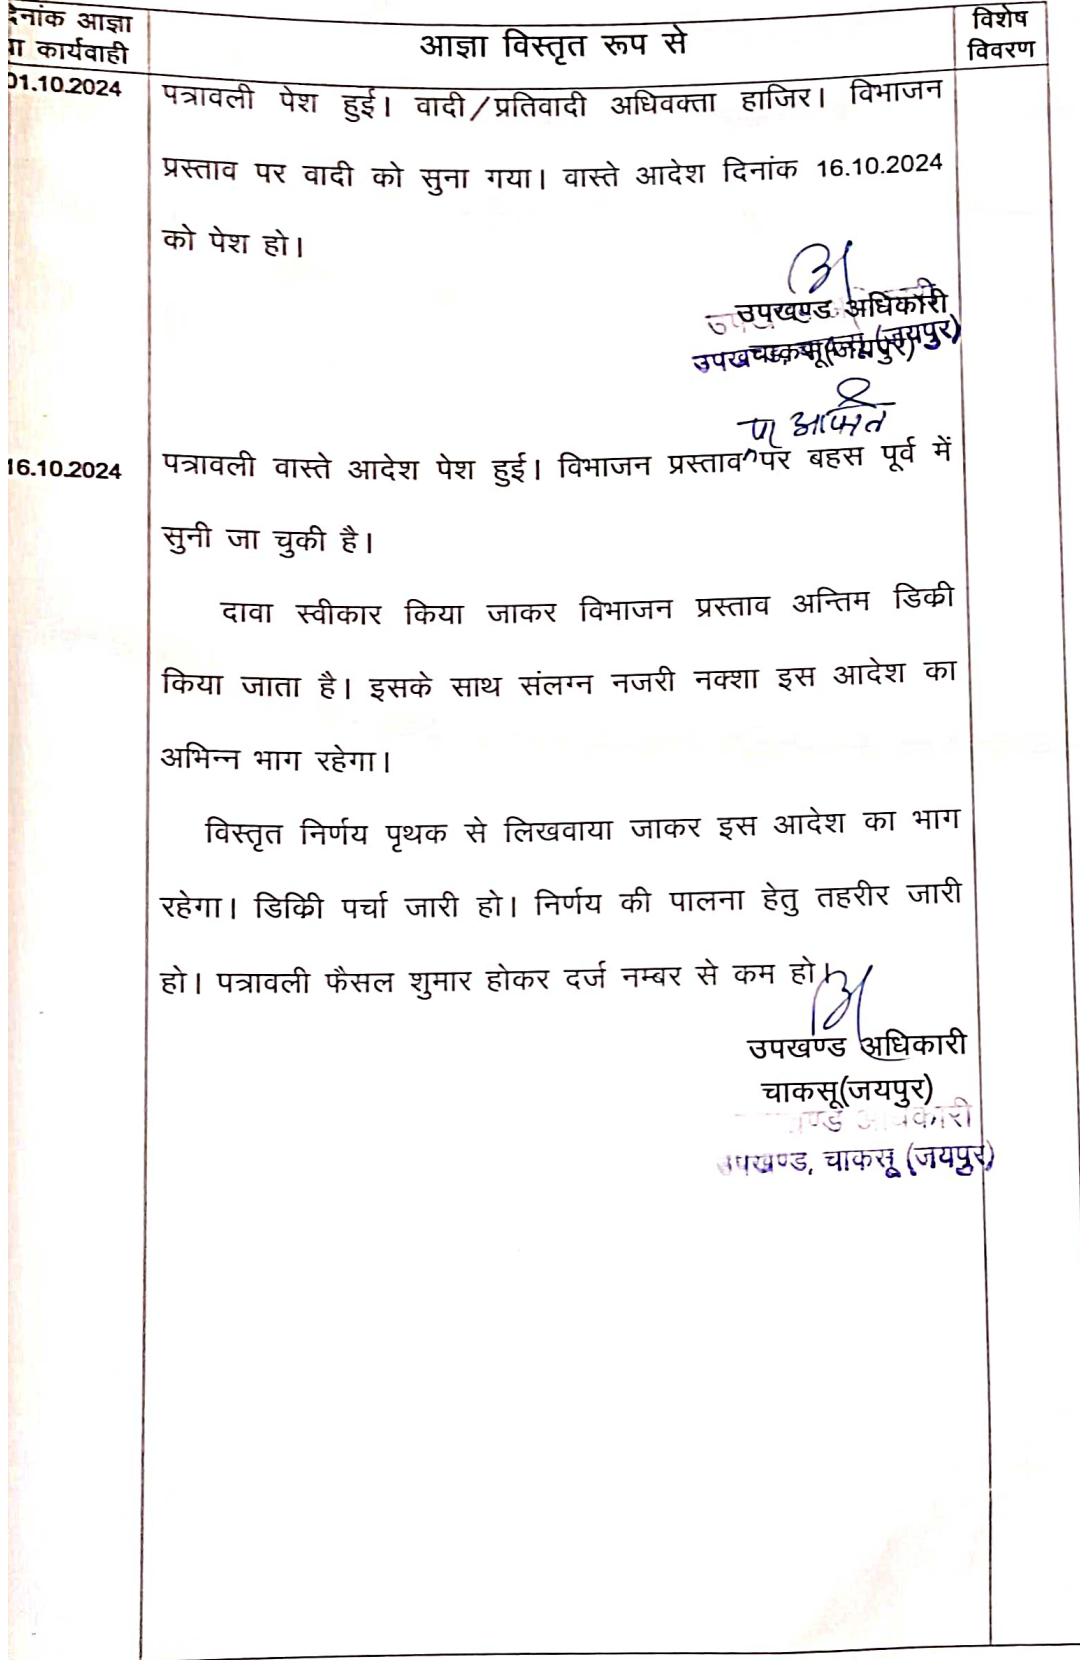 दिनांक आज्ञा
या कार्यवाही
आज्ञा विस्तृत रूप से
विशेष
विवरण
01.10.2024
पत्रावली पेश हुई। वादी/प्रतिवादी अधिवक्ता हाजिर। विभाजन
प्रस्ताव पर वादी को सुना गया। वास्ते आदेश दिनांक 16.10.2024
को पेश हो।
उपखण्ड अधिकारी
चाकसू(जयपुर)
16.10.2024
पत्रावली वास्ते आदेश पेश हुई। विभाजन प्रस्ताव पर बहस पूर्व में
सुनी जा चुकी है।
दावा स्वीकार किया जाकर विभाजन प्रस्ताव अन्तिम डिकी
किया जाता है। इसके साथ संलग्न नजरी नक्शा इस आदेश का
अभिन्न भाग रहेगा।
विस्तृत निर्णय पृथक से लिखवाया जाकर इस आदेश का भाग
रहेगा। डिकिी पर्चा जारी हो। निर्णय की पालना हेतु तहरीर जारी
हो। पत्रावली फैसल शुमार होकर दर्ज नम्बर से कम हो।
उपखण्ड अधिकारी
चाकसू(जयपुर)
उपखण्ड, चाकसू (जयपुर)